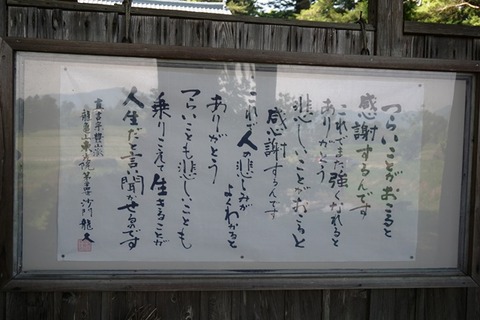 つらいことがおこると
感謝するんです
これでまた強くなれると
ありがとう
悲しいことがおこると
感謝するんです
これで人の悲しみが
よくわかると
ありがとう
つらいことも悲しいことも
乗りこえて生きることが
人生だと言い聞かせるのです